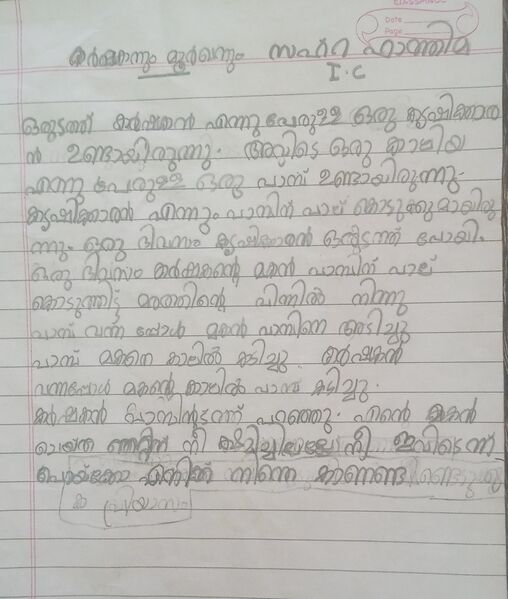 CLASSMATE
Date
Page
കർഷകനും മൂർഖനും സഫ്റ ഫാത്തിമ
I.C
ഒരുടത്ത് കർഷകൻ എന്നു പേരുള്ള ഒരു കൃഷിക്കാര
ൻ ഉണ്ടായിരുന്നു. അവിടെ ഒരു കാലിയ
എന്നു പേരുള്ള ഒരു പാമ്പ് ഉണ്ടായിരുന്നു.
കൃഷിക്കാരൻ എന്നും പാമ്പിന് പാല് കൊടുക്കുമായിരു
ന്നു. ഒരു ദിവസം കൃഷിക്കാരൻ ഒരിടത്ത് പോയി.
ഒരു ദിവസം കർഷകന്റെ മകൻ പാമ്പിന് പാല്
കൊടുത്തിട്ട് മരത്തിന്റെ പിന്നിൽ നിന്നു
പാമ്പ് വന്ന പ്പോൾ മകൻ പാമ്പിനെ അടിച്ചു
പാമ്പ് മകനെ കാലിൽ കടിച്ചു. കർഷകൻ
വന്നപ്പോൾ മകന്റെ കാലിൽ പാമ്പ് കടിച്ചു.
കർഷകൻ പാമ്പിനടുത്ത് പറഞ്ഞു. എന്റെ മകൻ
ചെയ്ത തെറ്റിന് നീ ഇവിടെ ന്ന്
പൊയ്ക്കോ എനിക്ക് നിന്നെ കാണെണ്ട